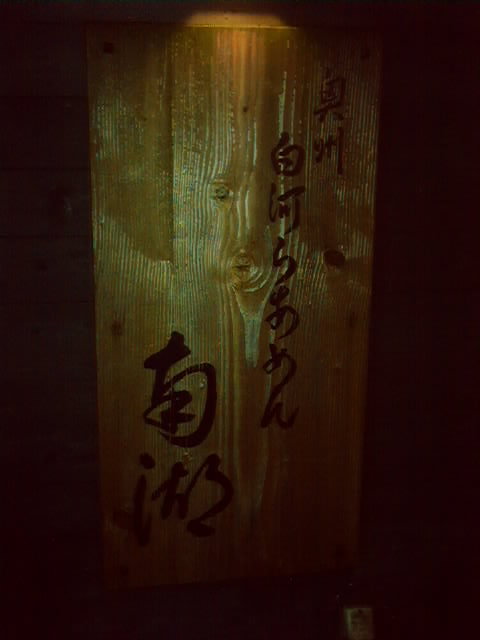 奥州
白河らあめん
南湖